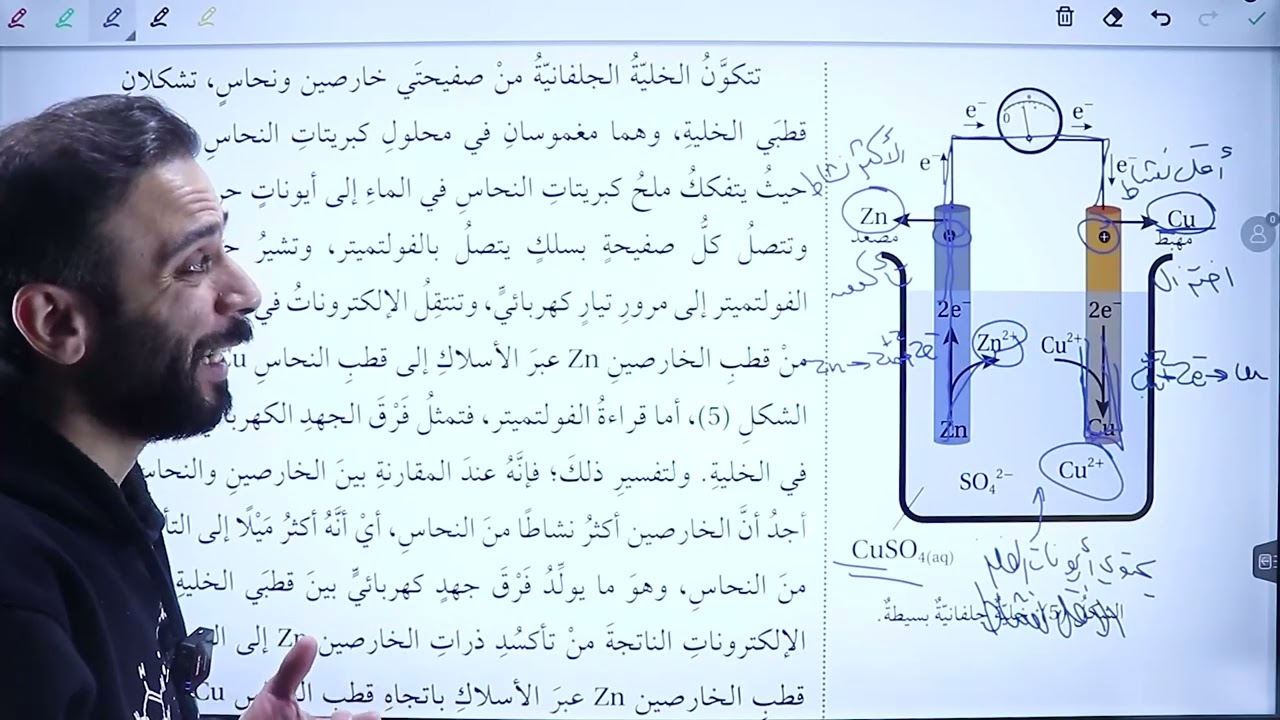 تتكوَّنُ الخليّةُ الجلفانيّةُ منْ صفيحتَي خارصين ونحاسٍ، تشكلانِ
قطبَي الخليةِ، وهما مغموسانِ في محلولِ كبريتاتِ النحاسِ
حيثُ يتفككُ ملحُ كبريتاتِ النحاسِ في الماءِ إلى أيوناتٍ
وتتصلُ كلُّ صفيحةٍ بسلكٍ يتصلُ بالفولتميتر، وتشيرُ
الفولتميتر إلى مرورِ تيارٍ كهربائيٍّ، وتنتقِلُ الإلكتروناتُ في
منْ قطبِ الخارصينِ Zn عبرَ الأسلاكِ إلى قطبِ النحاسِ Cu
الشكلِ (5)، أما قراءةُ الفولتميتر، فتمثلُ فَرْقَ الجهدِ
في الخليةِ. ولتفسيرِ ذلكَ؛ فإنَّهُ عندَ المقارنةِ بينَ الخارصينِ والنحاسِ
أجدُ أنَّ الخارصين أكثرُ نشاطًا منَ النحاسِ، أيْ أنَّهُ أكثرُ مَيْلًا إلى
منَ النحاسِ، وهوَ ما يولِّدُ فَرْقَ جهدٍ كهربائيٍّ بينَ قطبَي الخليةِ
الإلكتروناتِ الناتجةَ منْ تأكسُدِ ذراتِ الخارصينِ Zn إلى
قطبِ الخارصين Zn عبرَ الأسلاكِ باتجاهِ قطبِ Cu
e⁻ 0 e⁻
e⁻ e⁻
الأكثر نشاط
أقل نشاط
Zn Cu
مصعد مهبط
تأكسد
اختزال
+
2e⁻ 2e⁻
Zn²⁺ Cu²⁺
Zn → Zn⁺² + 2e⁻
Cu⁺² + 2e⁻ → Cu
Zn Cu
SO₄²⁻ Cu²⁺
CuSO₄(aq)
يحتوي أيونات الفلز
جلفانيّةٌ بسيطةٌ.